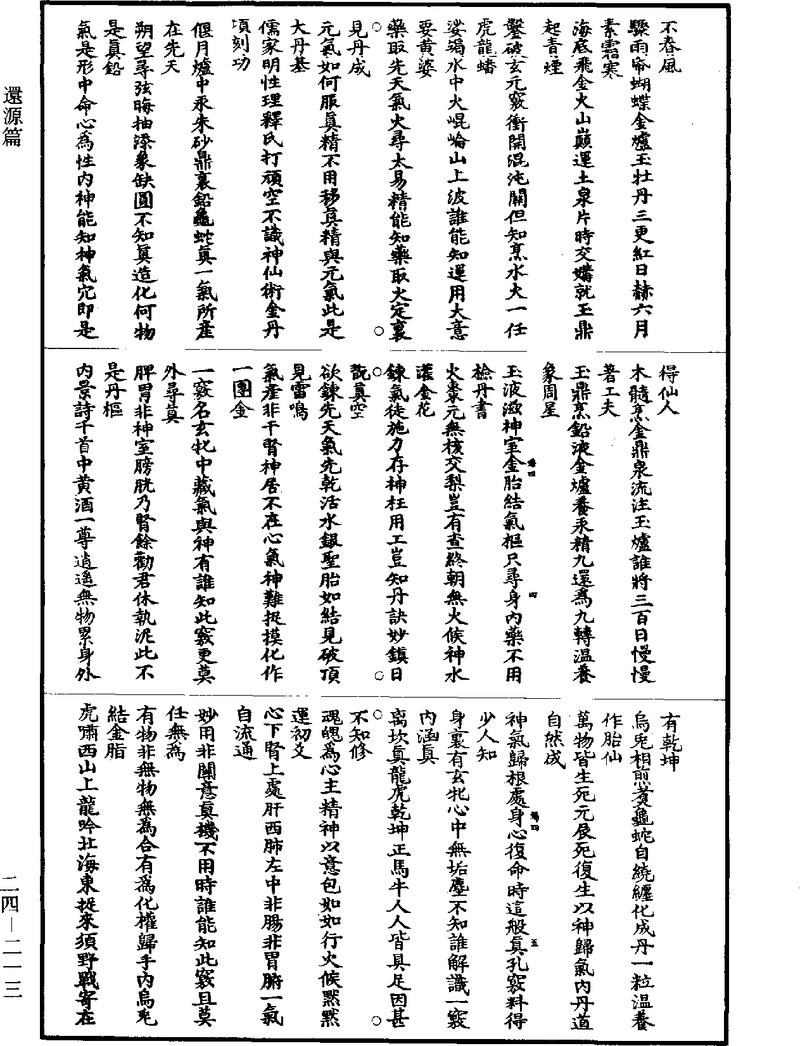 還源篇
不春風
驟雨帘蝴蝶金爐玉牡丹三更紅日赫六月
素霜寒
海底飛金火山巔運土泉片時交媾就玉鼎
起青煙
鑿破玄元竅衝開混沌關但知烹水火一任
虎龍蟠
娑竭水中火崐崘山上波誰能知運用大意
要黃婆
藥取先天氣火尋太易精能知藥取火定裏
見丹成
元氣如何服眞精不用移眞精與元氣此是
大丹基
儒家明性理釋氏打頑空不識神仙術金丹
頃刻功
偃月爐中汞朱砂鼎裏鉛龜蛇眞一氣所產
在先天
朔望尋弦晦抽添象缺圓不知眞造化何物
是眞鉛
氣是形中命心為性内神能知神氣穴即是
得仙人
木髓烹金鼎泉流注玉爐誰將三百日慢慢
著工夫
玉鼎烹鉛液金爐養汞精九還為九轉温養
象周星
玉液滋神室金胎結氣樞只尋身内藥不用
檢丹書
火棗元無核交梨豈有查終朝無火候神水
灌金花
鍊氣徒施力存神枉用工豈知丹訣妙鎮日
翫眞空
欲鍊先天氣先乾活水銀聖胎如結見破頂
見雷鳴
氣產非干腎神居不在心氣神難捉摸化作
一團金
一竅名玄牝中藏氣與神有誰知此竅更莫
外尋眞
脾胃非神室膀胱乃腎餘勸君休執泥此不
是丹樞
内景詩千首中黄酒一尊逍遙無物累身外
有乾坤
烏兎相煎煑龜蛇自繞纏化成丹一粒温養
作胎仙
萬物皆生死元辰死復生以神歸氣内丹道
自然成
神氣歸根處身心復命時這般眞孔竅料得
少人知
身裏有玄牝心中無垢塵不知誰解識一竅
内涵眞
离坎眞龍虎乾坤正馬牛人人皆具足因甚
不知修
魂魄為心主精神以意包如如行火候黙黙
運初爻
心下腎上處肝西肺左中非腸非胃腑一氣
自流通
妙用非關意眞機不用時誰能知此竅且莫
任無為
有物非無物無為合有為化權歸手内烏兎
結金脂
虎嘯西山上龍吟北海東捉來須野戰寄在
二四—二一三